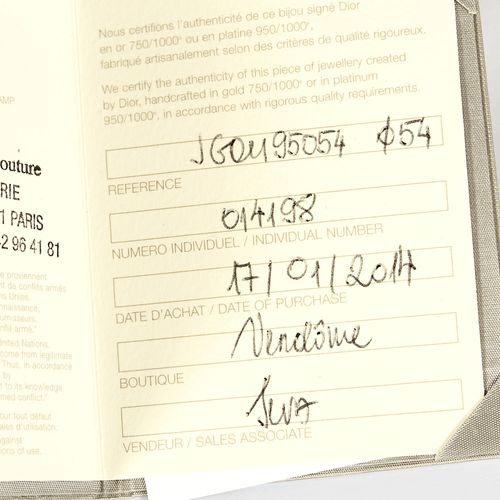 Nous certifions l'authenticité de ce bijou signé Dior
en or 750/1000° ou en platine 950/1000°,
fabriqué artisanalement selon des critères de qualité rigoureux.
We certify the authenticity of this piece of jewellery created
by Dior, handcrafted in gold 750/1000° or in platinum
950/1000°, in accordance with rigorous quality requirements.
JGOU95054 ϕ54
REFERENCE
014198
NUMERO INDIVIDUEL / INDIVIDUAL NUMBER
17/01/2014
DATE D'ACHAT / DATE OF PURCHASE
Vendôme
BOUTIQUE
VENDEUR / SALES ASSOCIATE
AMP
outure
RIE
1 PARIS
2 96 41 81
s proviennent
nt de conflits armés
ns Unies.
nnaissance,
urnisseurs,
nflit armé."
nited Nations.
come from legitimate
Thus, in accordance
by
t to its knowledge
med conflict."
our tout défaut
ales d'utilisation.
against
ions of use.